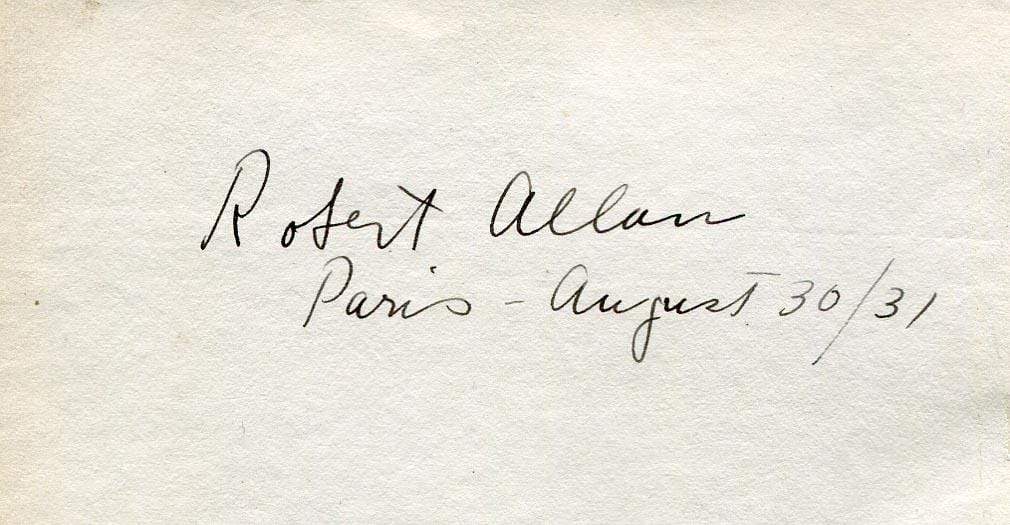 Robert Allan
Paris - August 30/31